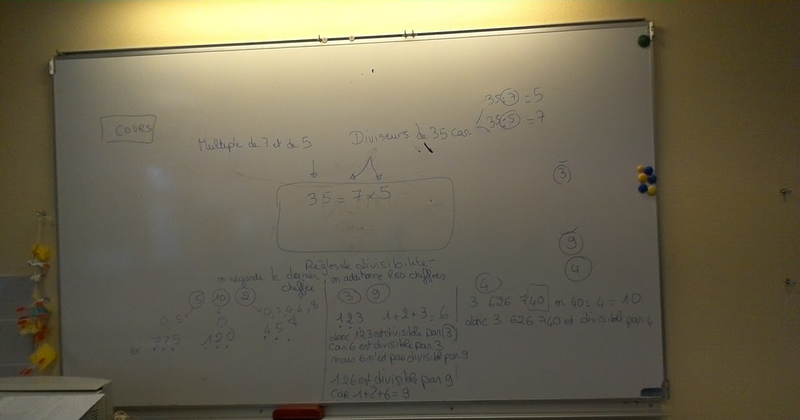 COURS
Multiple de 7 et de 5
Diviseurs de 35 car
35÷7=5
35÷5=7
35 = 7 x 5
3
9
4
Règles de divisibilité
on regarde le dernier chiffre
5 10 2
0,5
0
0,2,4,6,8
ex
775
120
on additionne les chiffres
3 9
123 1+2+3=6
donc 123 est divisible par 3
car 6 est divisible par 3
mais 6 n'est pas divisible par 9
126 est divisible par 9
car 1+2+6=9
4
3 626 740 or 40÷4=10
donc 3 626 740 est divisible par 4